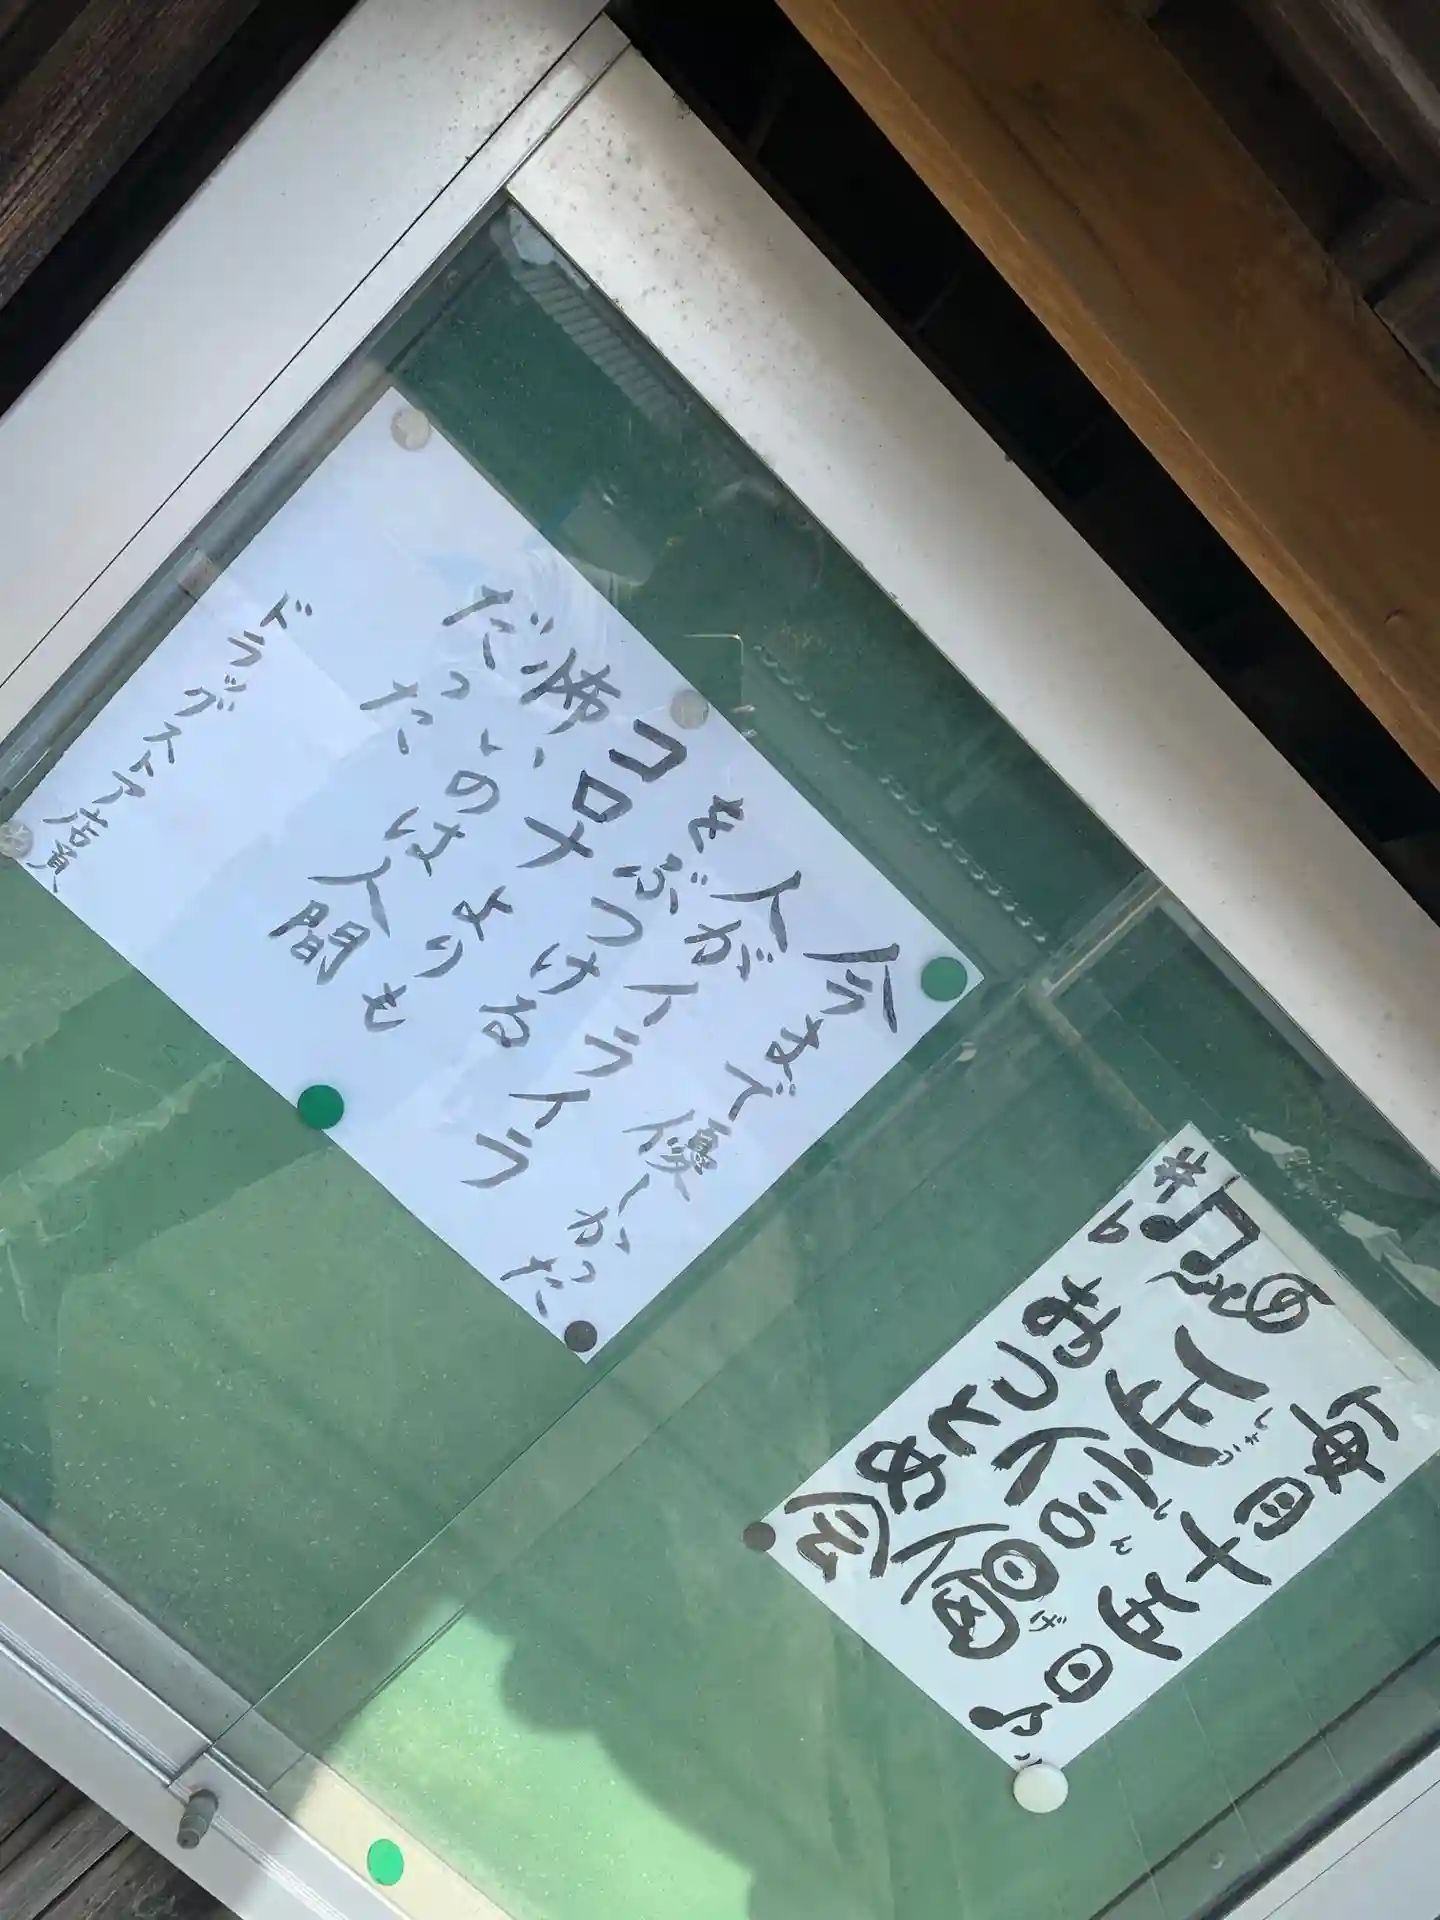 今まで優しかった
人がイライラ
をぶつける
コロナよりも
怖いのは人間
だった
ドラッグストア店員
毎月十五日♪
正信偈
しょうしんげ
おつとめ会